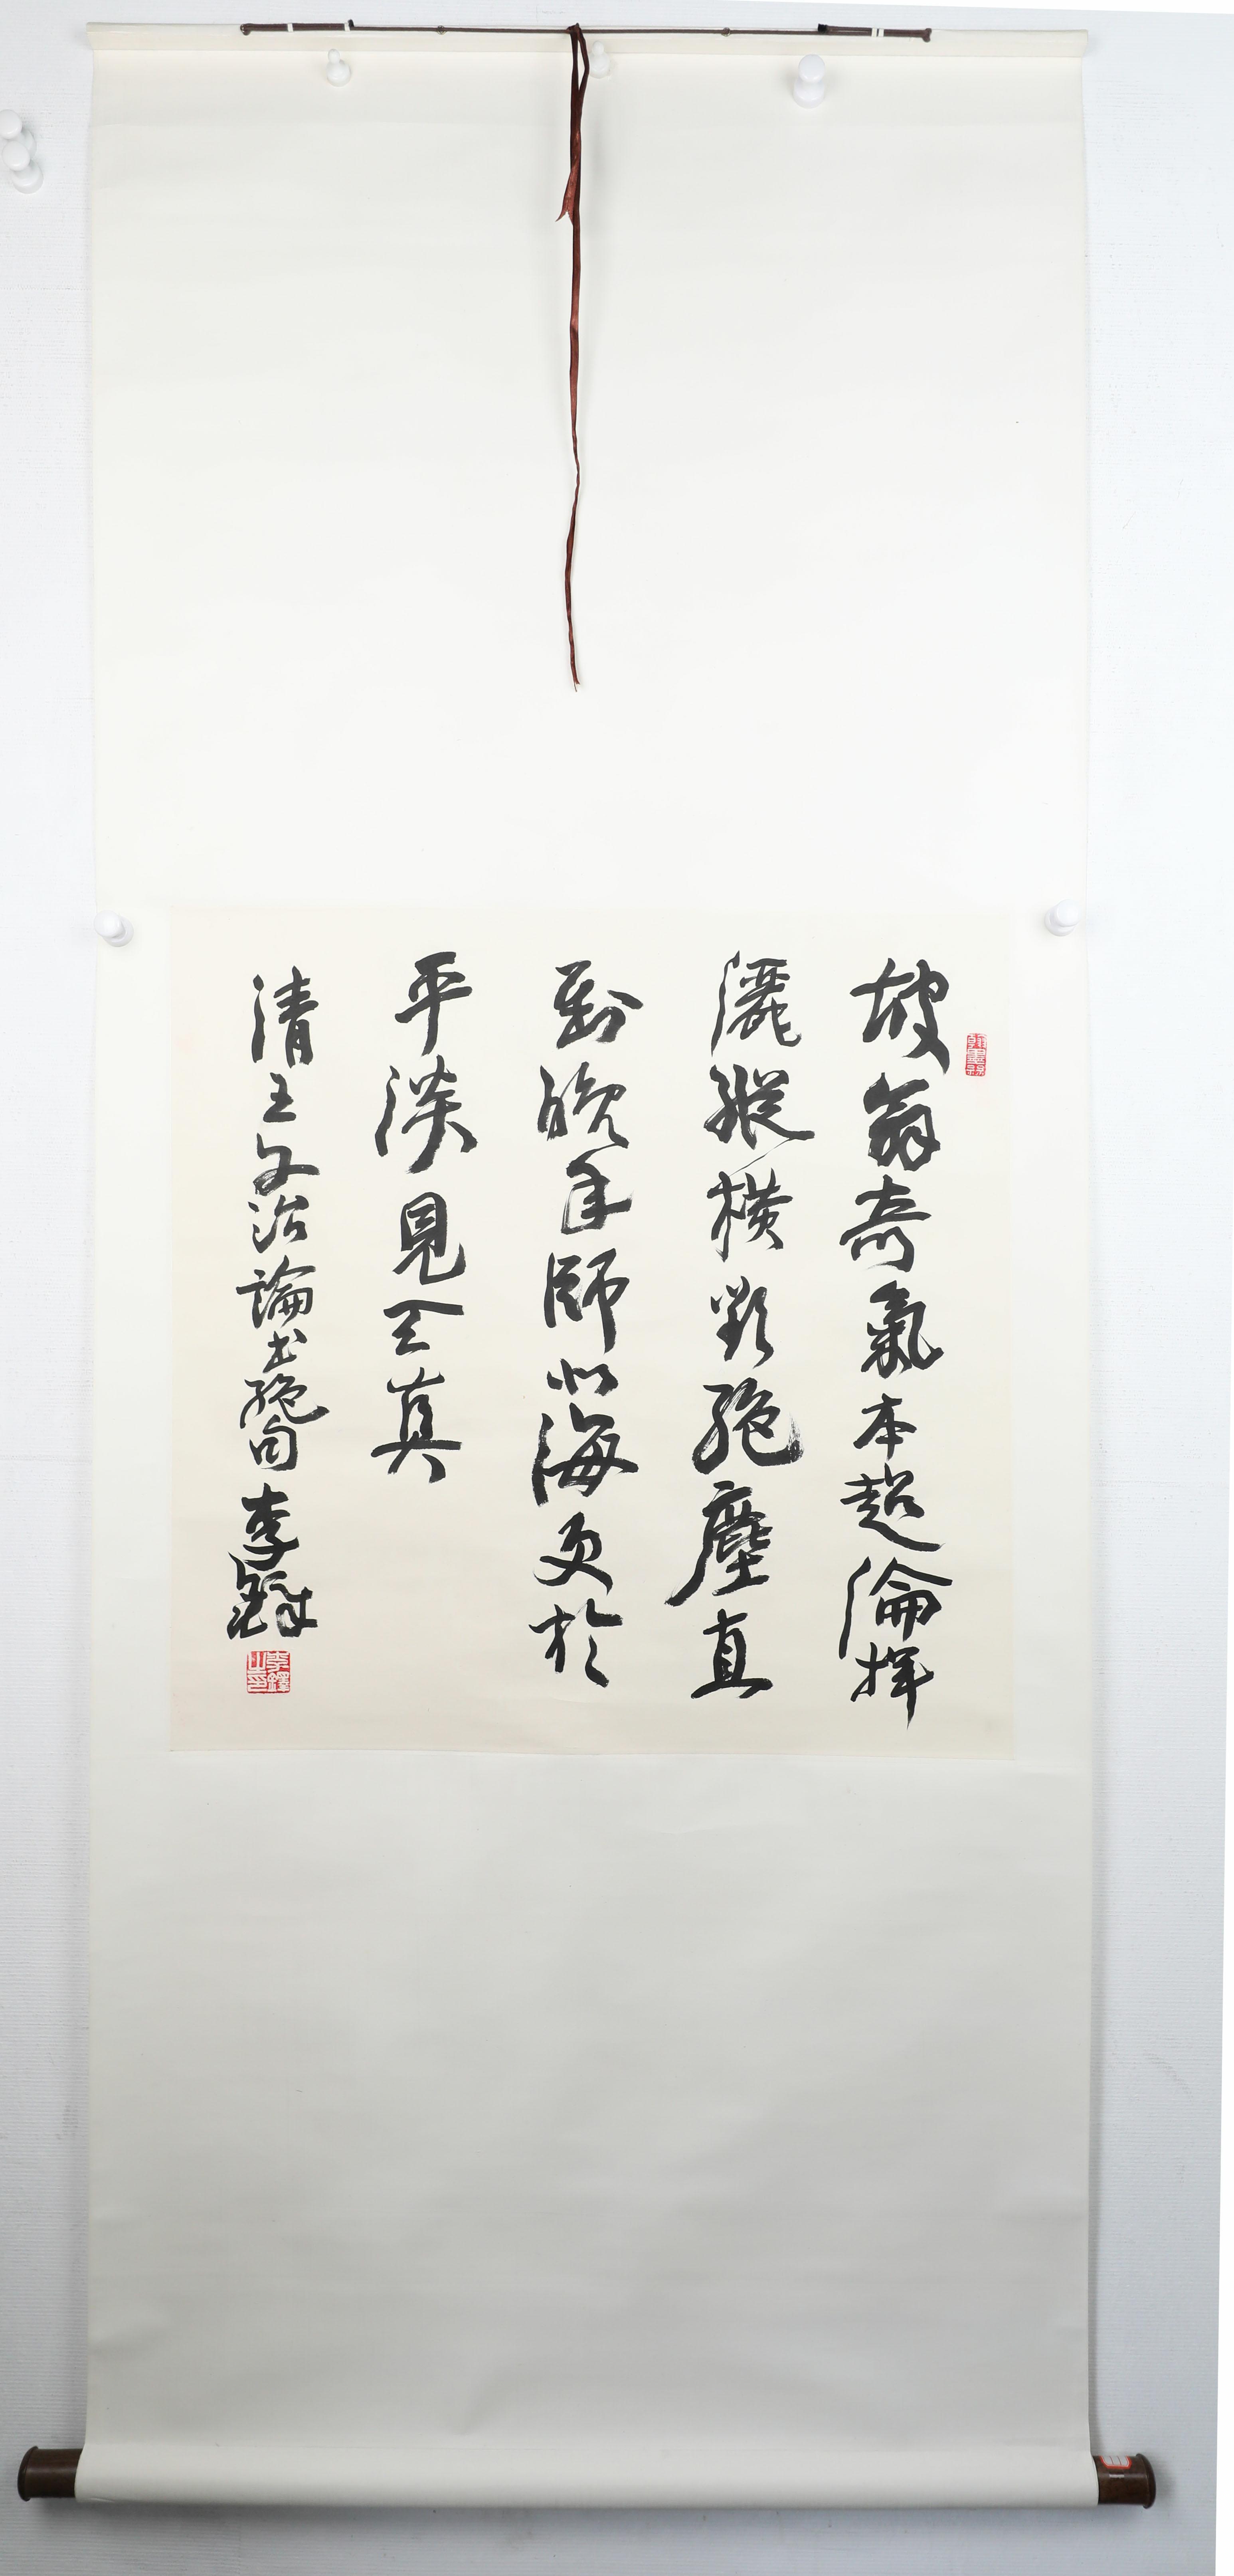 坡翁奇氣本超倫揮
灑縱橫欲絕塵直
到晚年師北海更於
平淡見天真
清王文治論書絕句 李鐸
李鐸之印